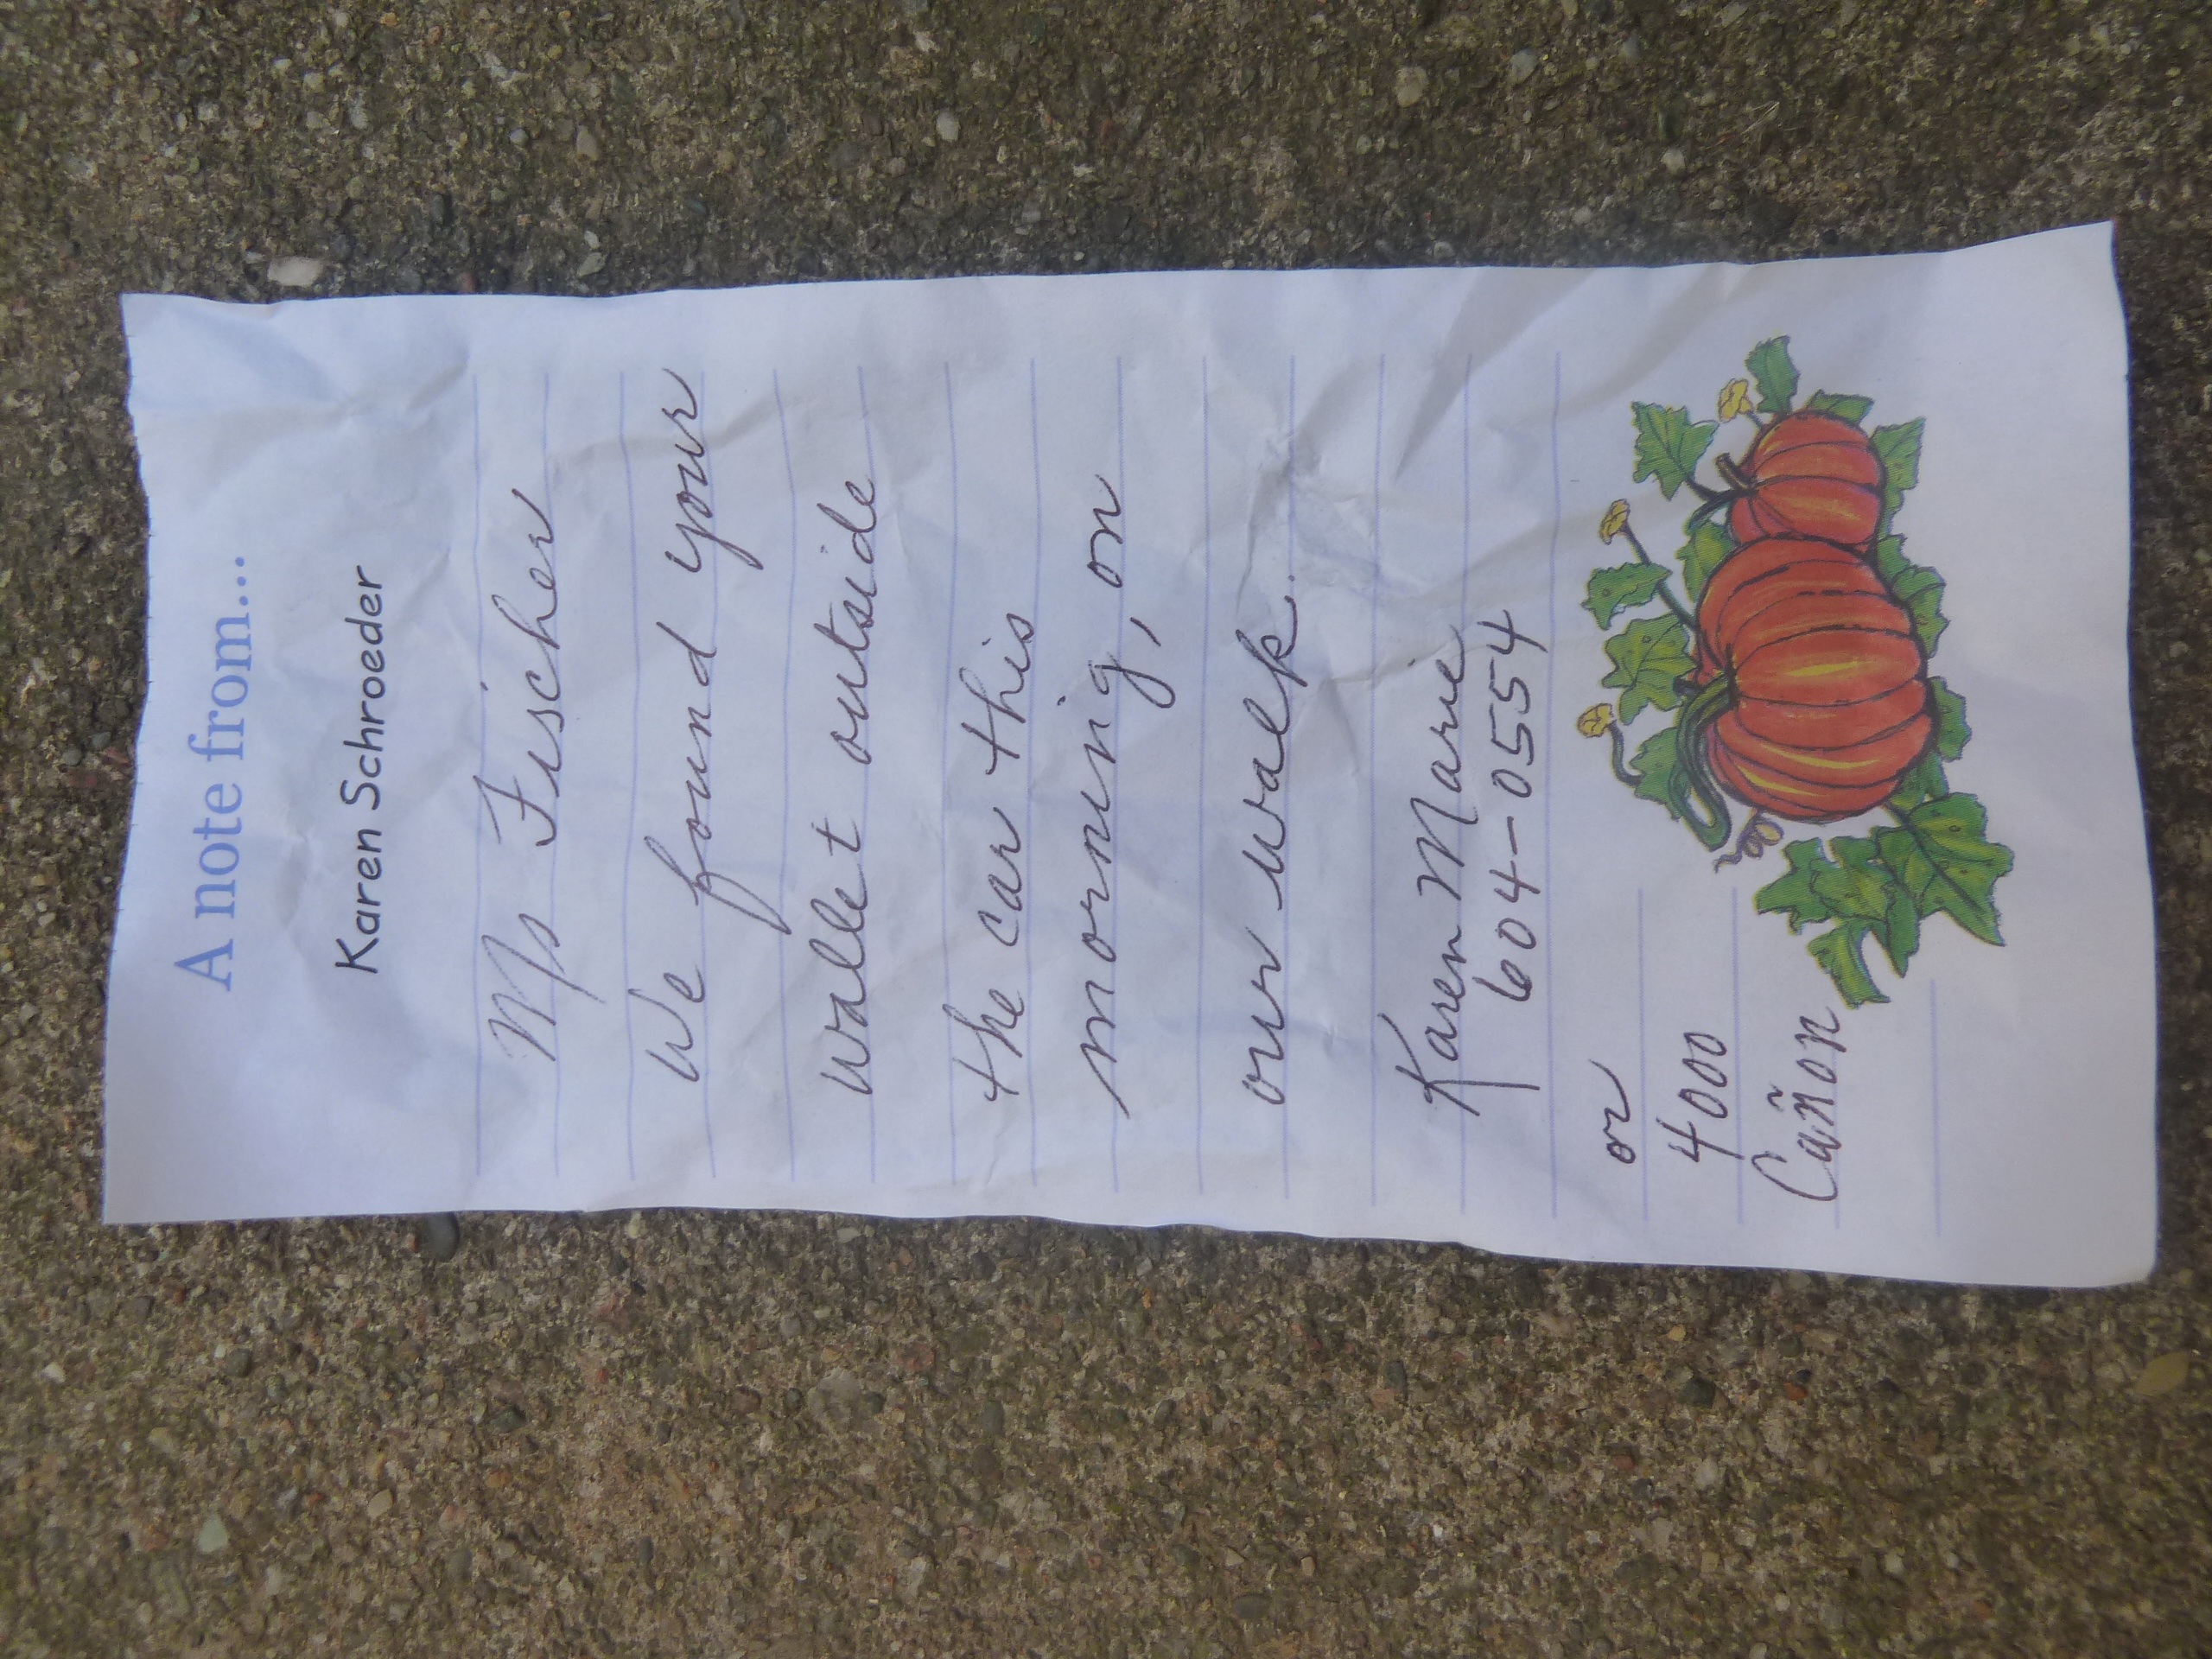 A note from...
Karen Schroeder
Ms Fischer
We found your
wallet outside
the car this
morning, on
our walk.
Karen Marie
604-0554
or
4000
Cañon